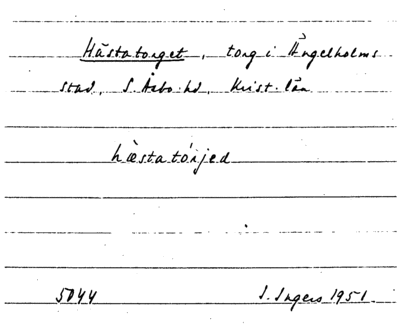 Hästatorget, torg i Ängelholms
stad, S. Åsbo hd, Krist. län
hästatórjed
5044 I. Ingers 1951.